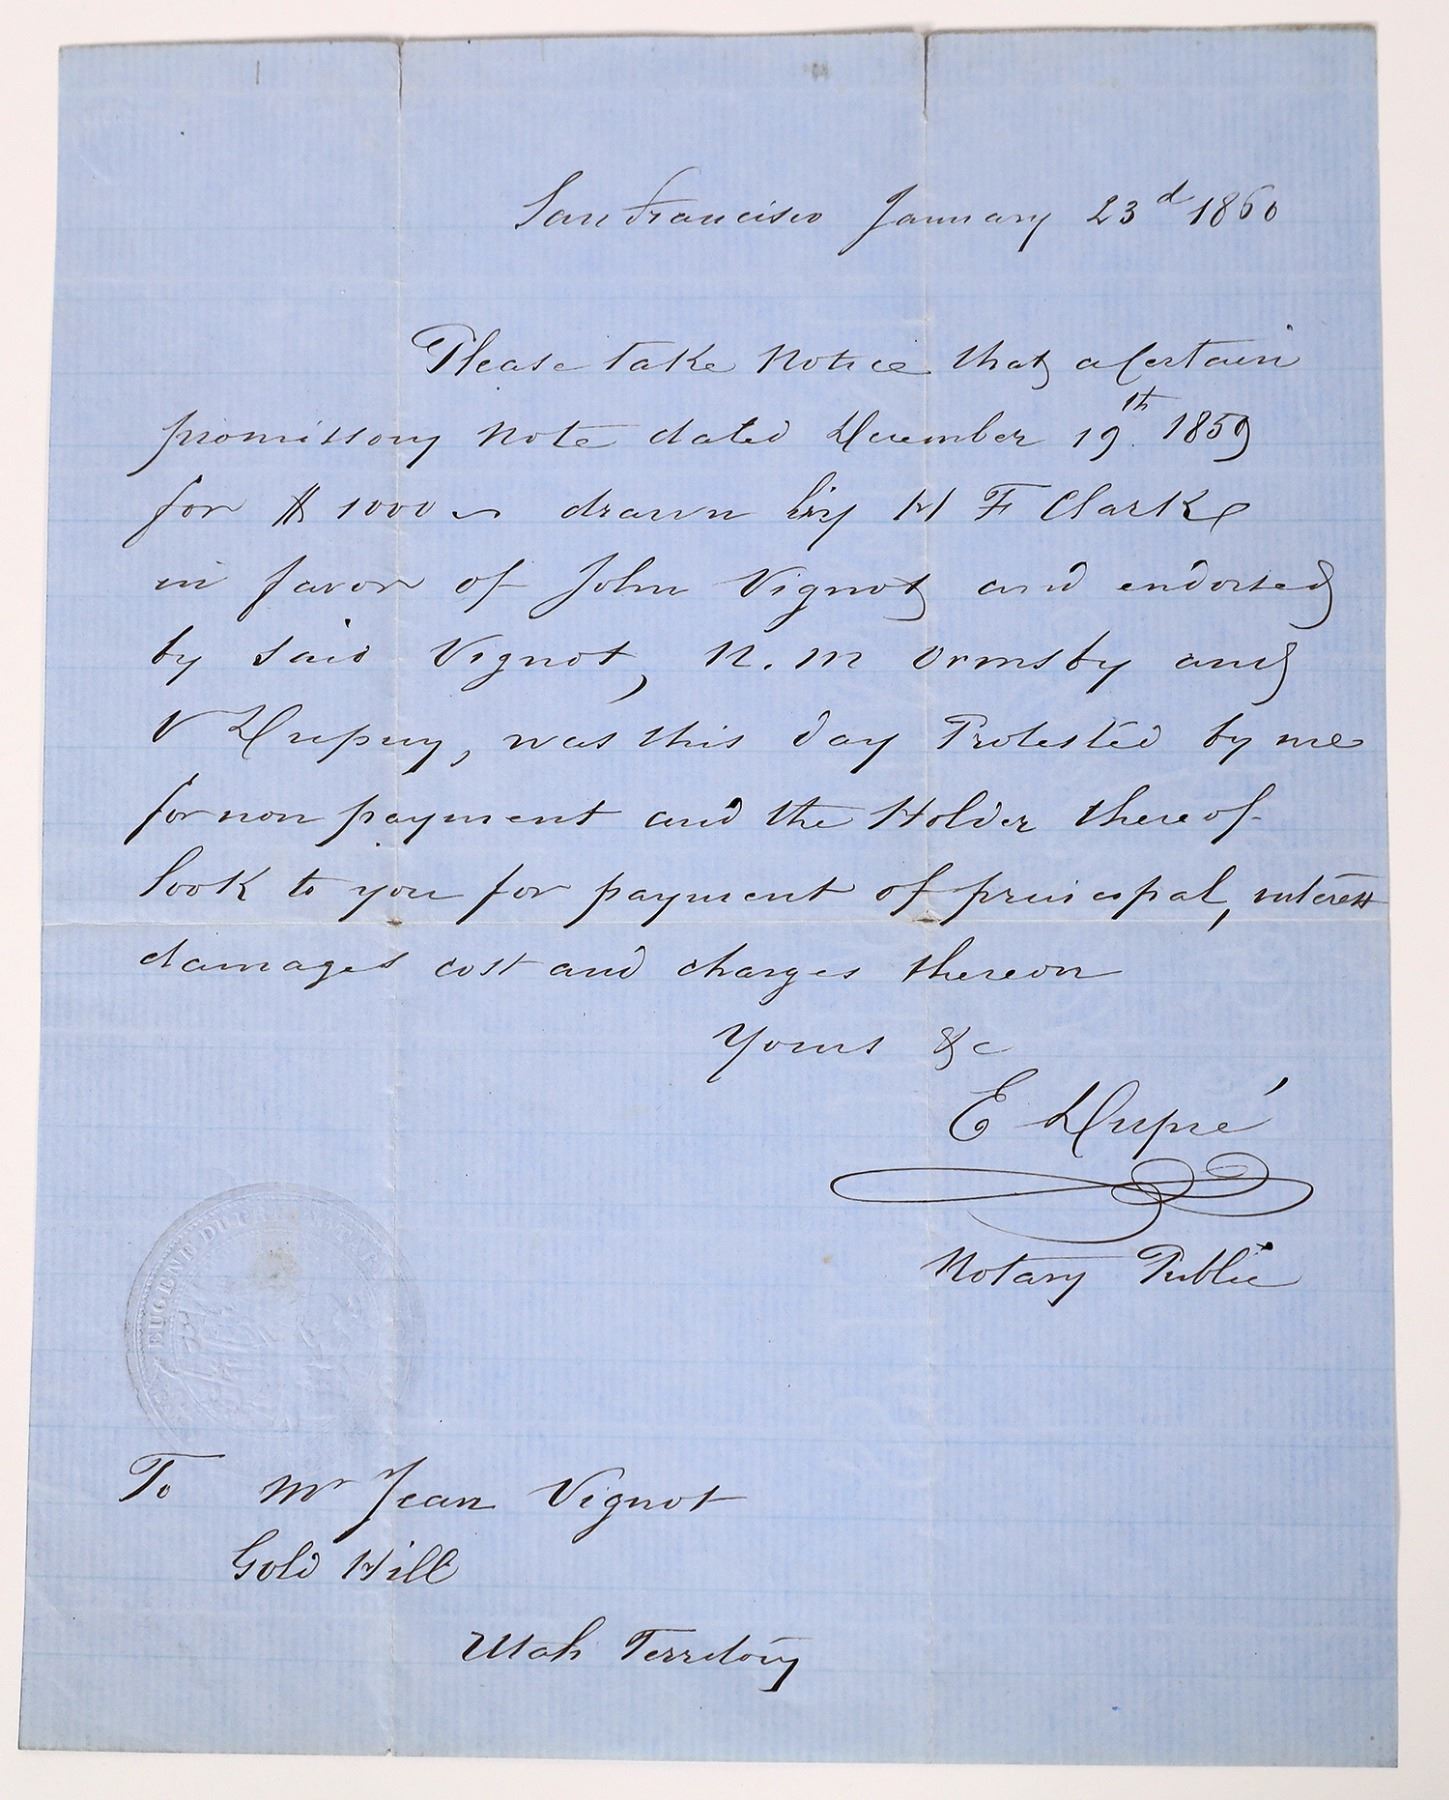 San Francisco January 23d 1860
Please take Notice that a Certain
promissory Note dated December 19th. 1859
for $1000 drawn by H F Clarke
in favor of John Vignot and endorsed
by said Vignot, N. M Ormsby and
V Dupuy, was this day Protested by me
for non payment and the Holder thereof
look to you for payment of principal, interest
damages cost and charges thereon
Yours &c
E Dupré
Notary Public
EUGENE DUPRE
To Mr Jean Vignot
Gold Hill
Utah Territory